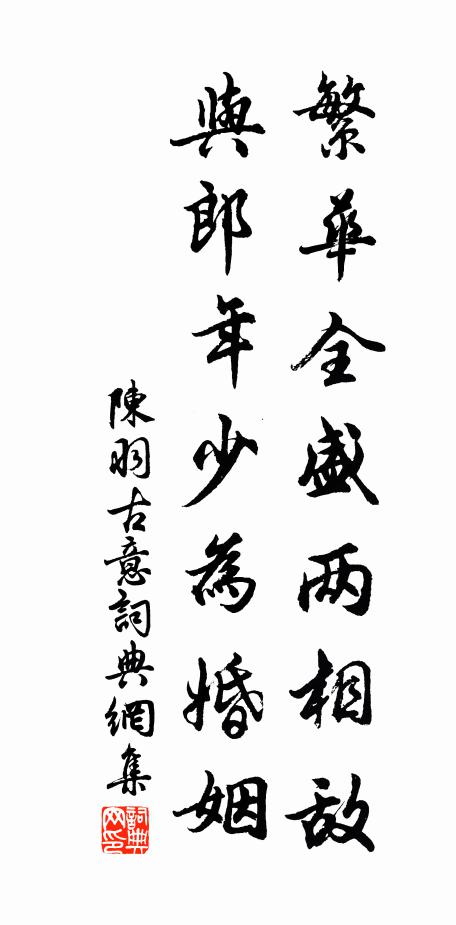 繁華全盛两相敌
與郎年少為婚姻
陳羽古意詞典網集
詞典网印